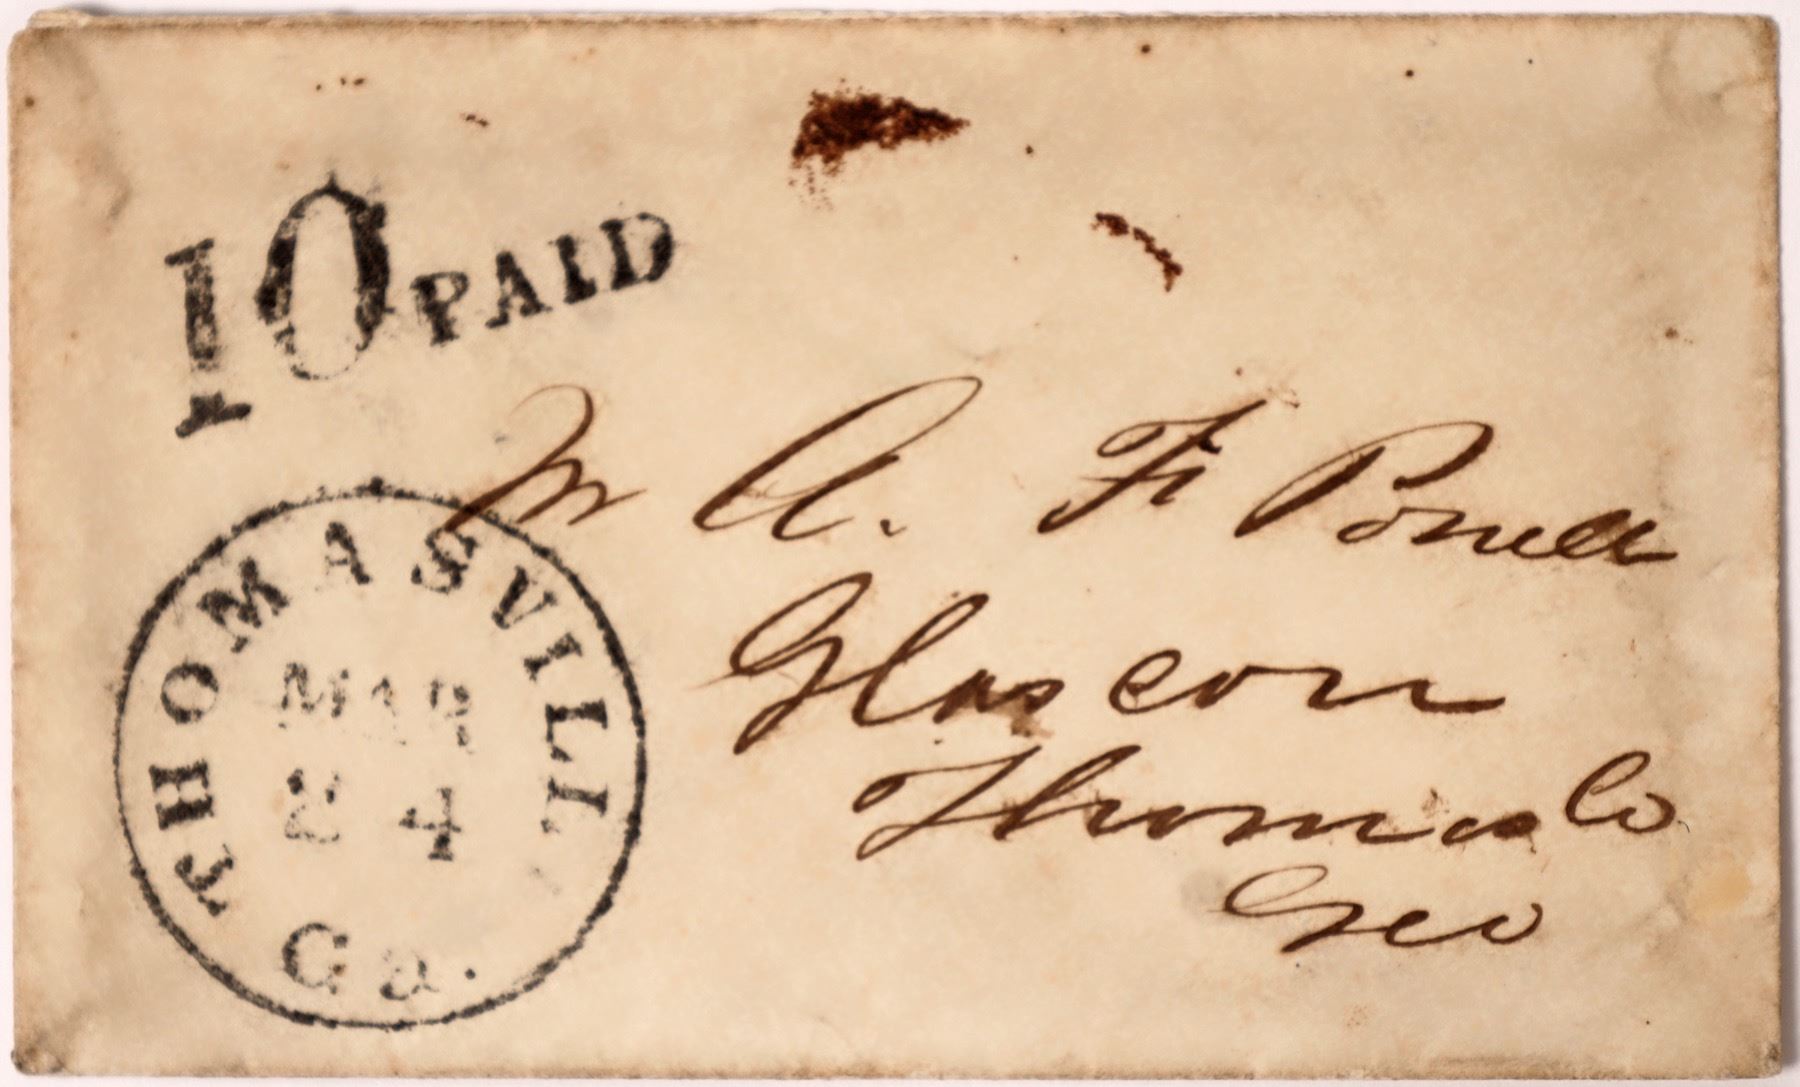 10 PAID
THOMASVILLE
MAR
24
Ga.
Mr A. F. Powell
Glascow
Thomas Co
Geo